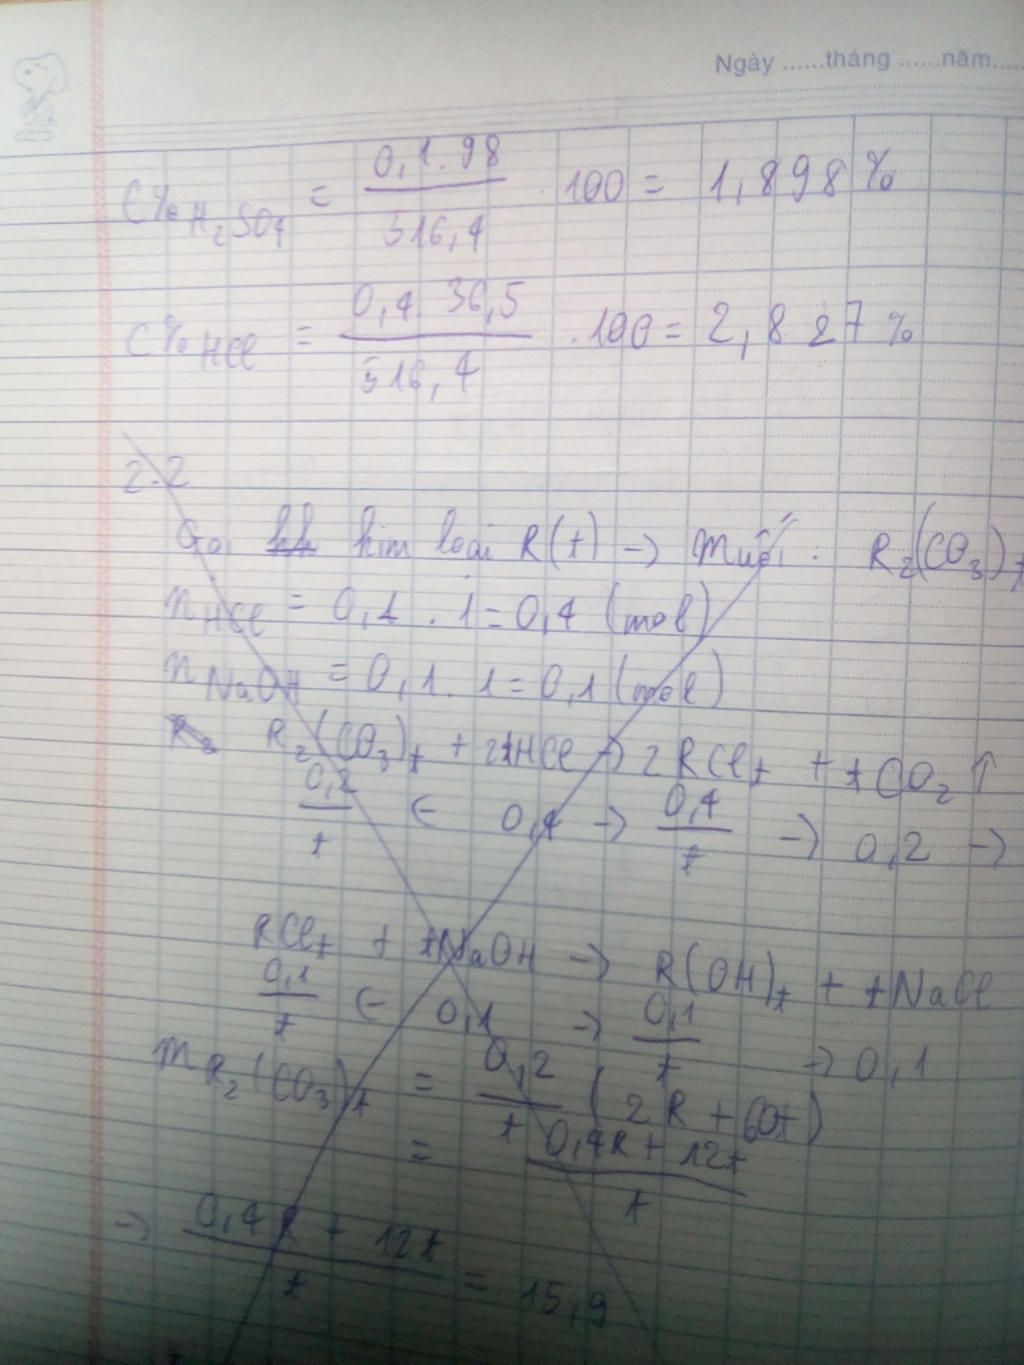 Ngày ......tháng ......năm.....
C%H₂SO₄ = 0,1.98 / 516,4 . 100 = 1,898%
C%HCl = 0,4 . 36,5 / 516,4 . 100 = 2,827%
2.2
Gọi kim loại R(t) → Muối : R₂(CO₃)t
nHCl = 0,4 . 1 = 0,4 (mol)
nNaOH = 0,1 . 1 = 0,1 (mol)
R₂(CO₃)t + 2tHCl → 2RClt + tCO₂↑
0,2/t ← 0,4 → 0,4/t → 0,2 →
RClt + tNaOH → R(OH)t + tNaCl
0,1/t ← 0,1 → 0,1/t → 0,1
mR₂(CO₃)t = 0,2/t (2R + 60t)
= 0,4R + 12t / t
→ 0,4R + 12t / t = 15,9